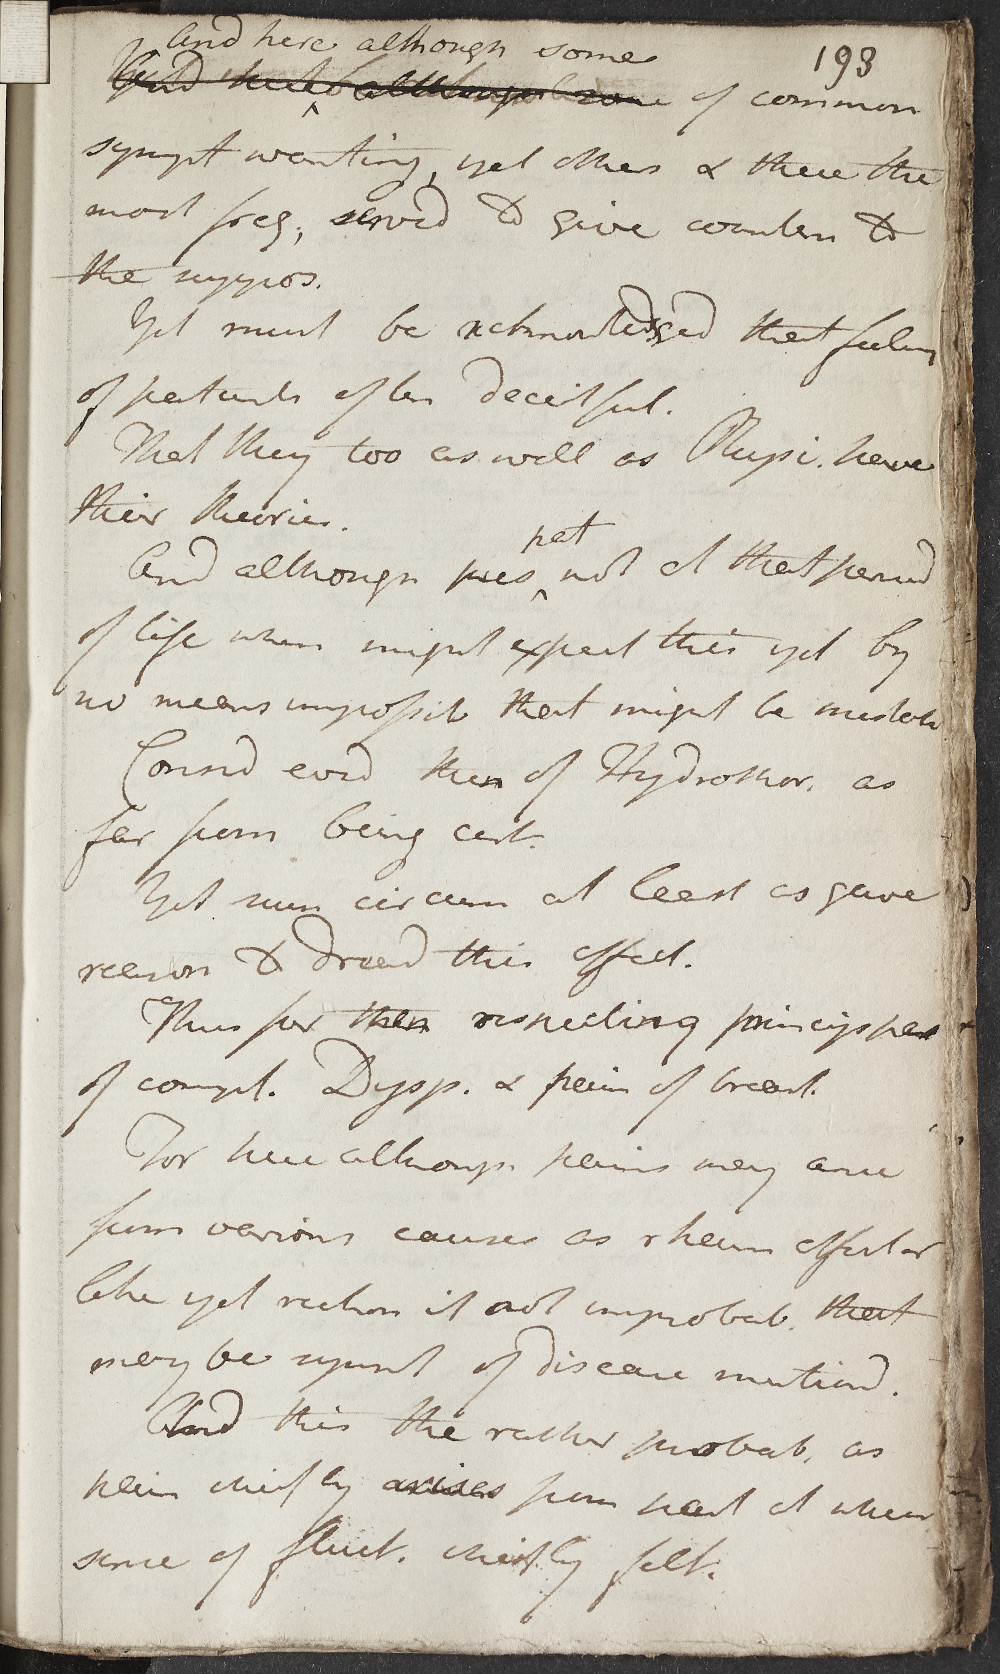 193
And here although some
And here although some of common
sympt wanting, yet others & these the
most freq, serv'd to give counten to
the suppos.
Yet must be acknowledged that feeling
of patients often deceitful.
That they too as well as Physi. have
their theories.
And although pres pat not at that period
of life when might expect this yet by
no means impossib that might be mistak
Consid evid then of Hydrothor. as
far from being cert.
Yet such circum at least as gave
reason to dread this effect.
Thus far then respecting princip part
of compt. Dysp. & pain of breast.
For here although pains may arise
from various causes as rheum affect or
like yet reckon it not improbab. that
may be sympt of disease mention'd.
And this the rather probab. as
pain chiefly arises from part at where
sense of fluct. chiefly felt.